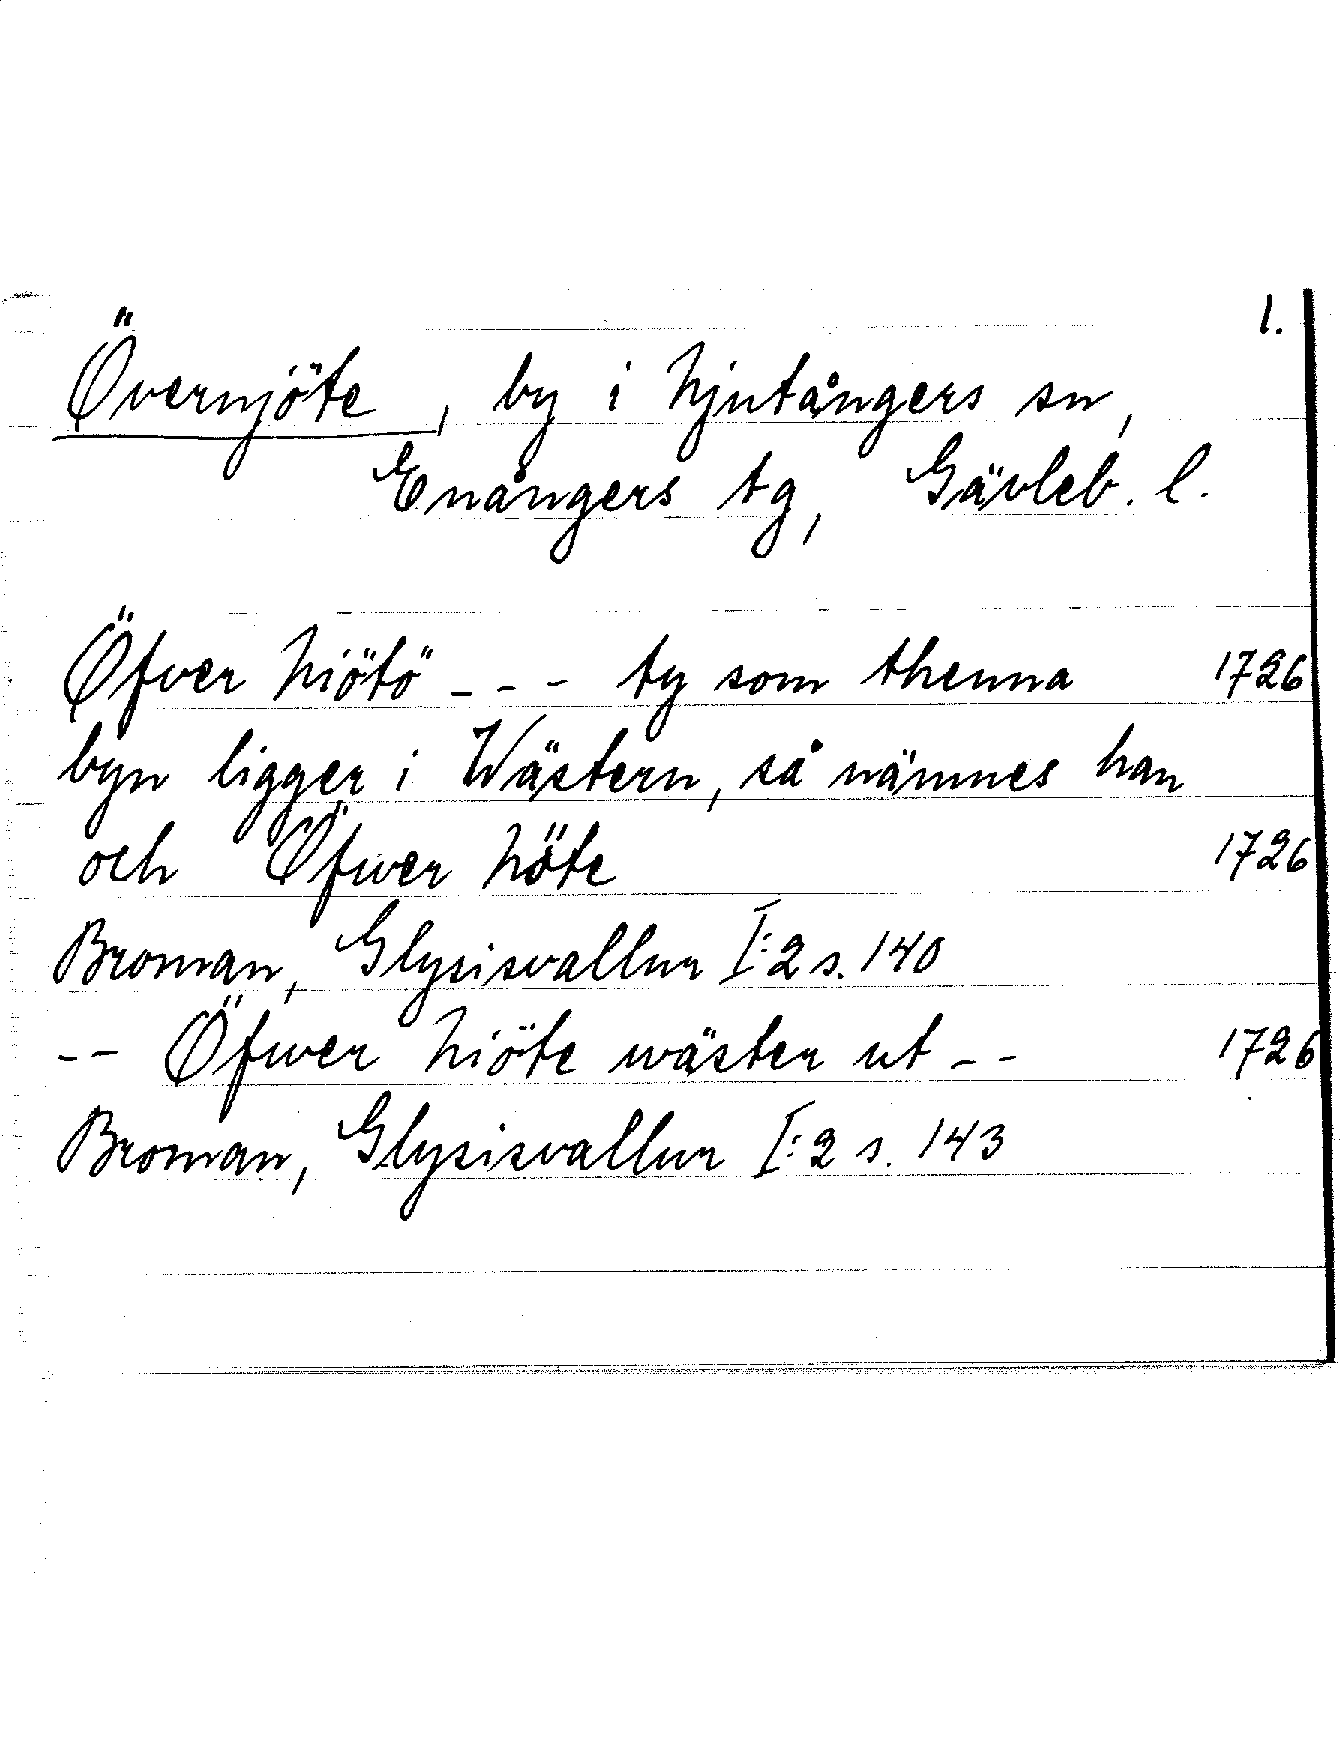 1.
Övernjöte, by i Njutångers sn,
Enångers tg, Gävleb. l.
Öfver Niötö - - - ty som thenna 1726
byn ligger i Wästern, så nämnes han
och Öfwer Nöte 1726
Broman, Glysisvallur I:2 s. 140
-- Öfwer Niöte wäster ut -- 1726
Broman, Glysisvallur I:2 s. 143